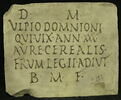 D M
VLPIO DOMNIONI
QVI VIX ANN M
AVR CEREALIS
FRVM LEGII ADIVT
B M F